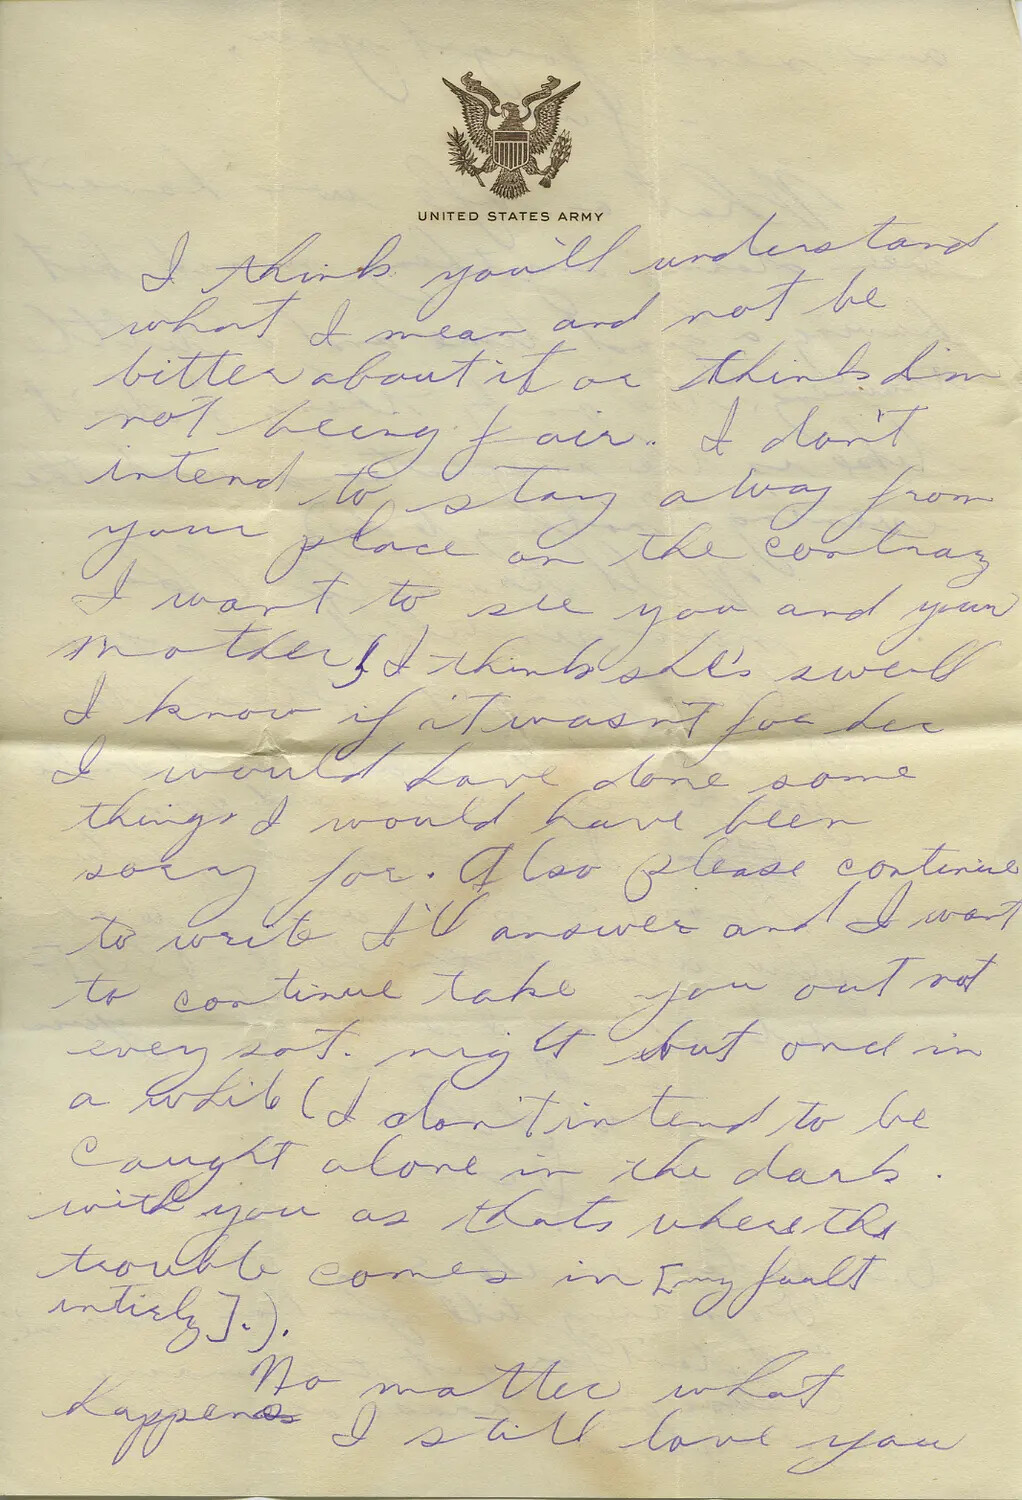 UNITED STATES ARMY
I think you'll understand
what I mean and not be
bitter about it or think I'm
not being fair. I don't
intend to stay away from
your place on the contray
I want to see you and your
mother, I think she's swell
I know if it wasn't for her
I would have done some
things I would have been
sorry for. Also please continue
to write I'll answer and I want
to continue take you out not
every sat. night but once in
a while (I don't intend to be
caught alone in the dark.
with you as thats where the
trouble comes in [my fault
intirly].).
No matter what
happens
I still love you